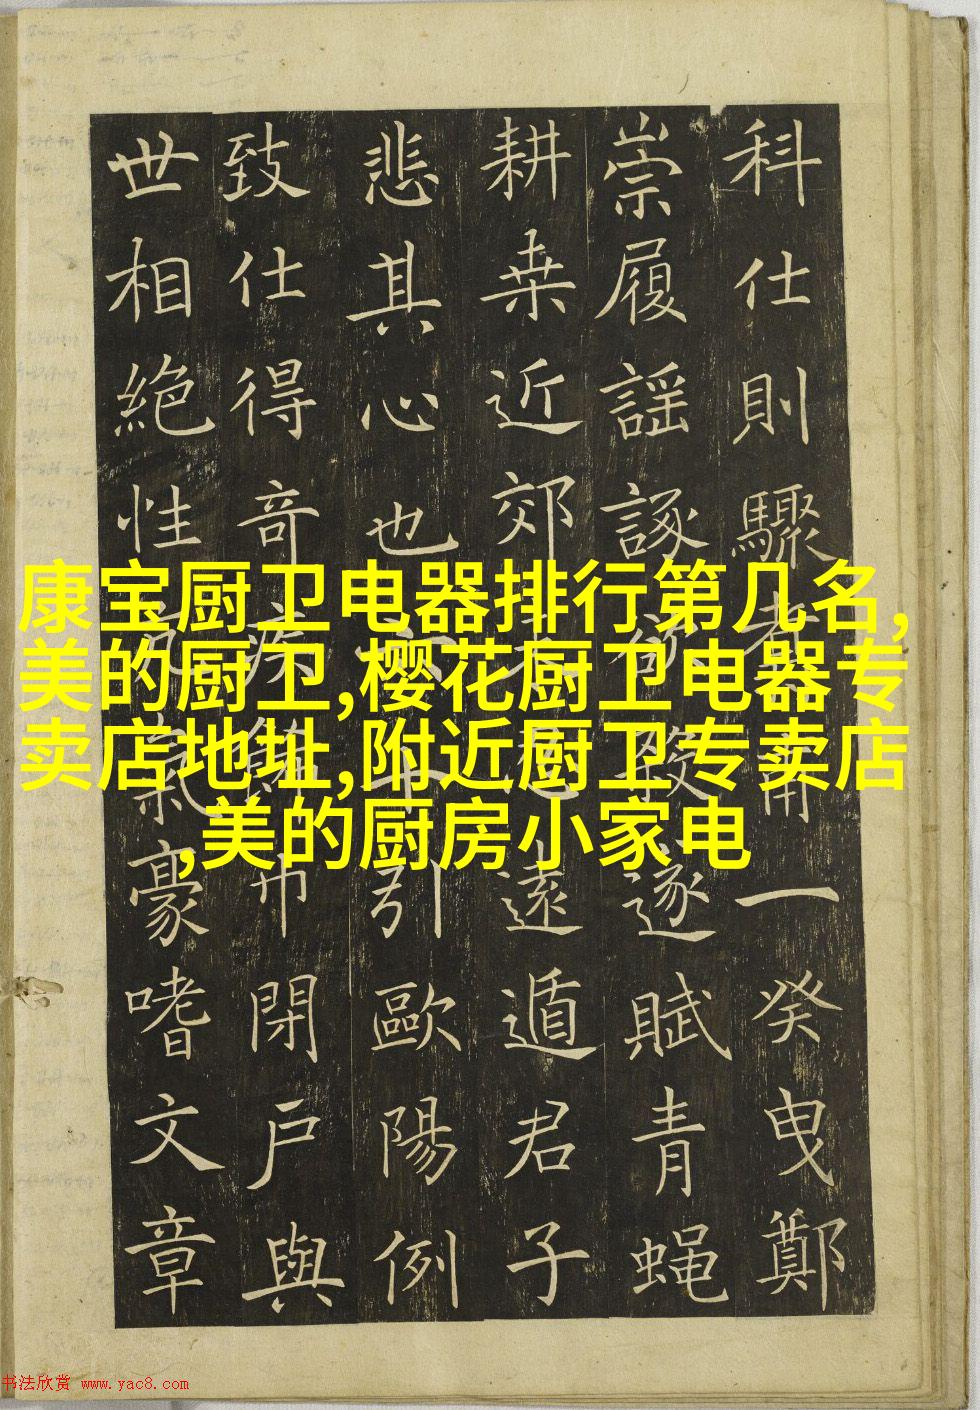 科仕則驟
一癸曳鄭
崇履謡諑
逐賦青蝇
耕桒近郊
遠遁君子
悲其心也
引歐陽例
致仕得奇
閉戸與
世相絶性
豪嗜文章
康宝厨卫电器排行第几名,
美的厨卫,樱花厨卫电器专
卖店地址,附近厨卫专卖店
,美的厨房小家电
书法欣赏 www.yac8.com